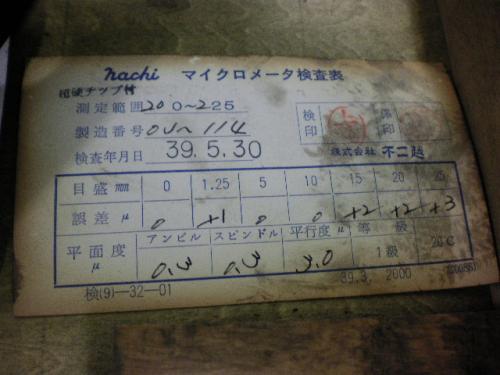 nachi マイクロメータ検査表
超硬チップ付
測定範囲 200~225
製造番号 OU~114
検査年月日 39.5.30
検印
株式会社 不二越
目盛 mm 0 1.25 5 10 15 20 25
誤差 μ 0 +1 0 0 +2 +2 +3
平面度 μ アンビル スピンドル 平行度 μ 等級
0.3 0.3 3.0 1級 20°C
検(9)-32-01 39.3. 2000